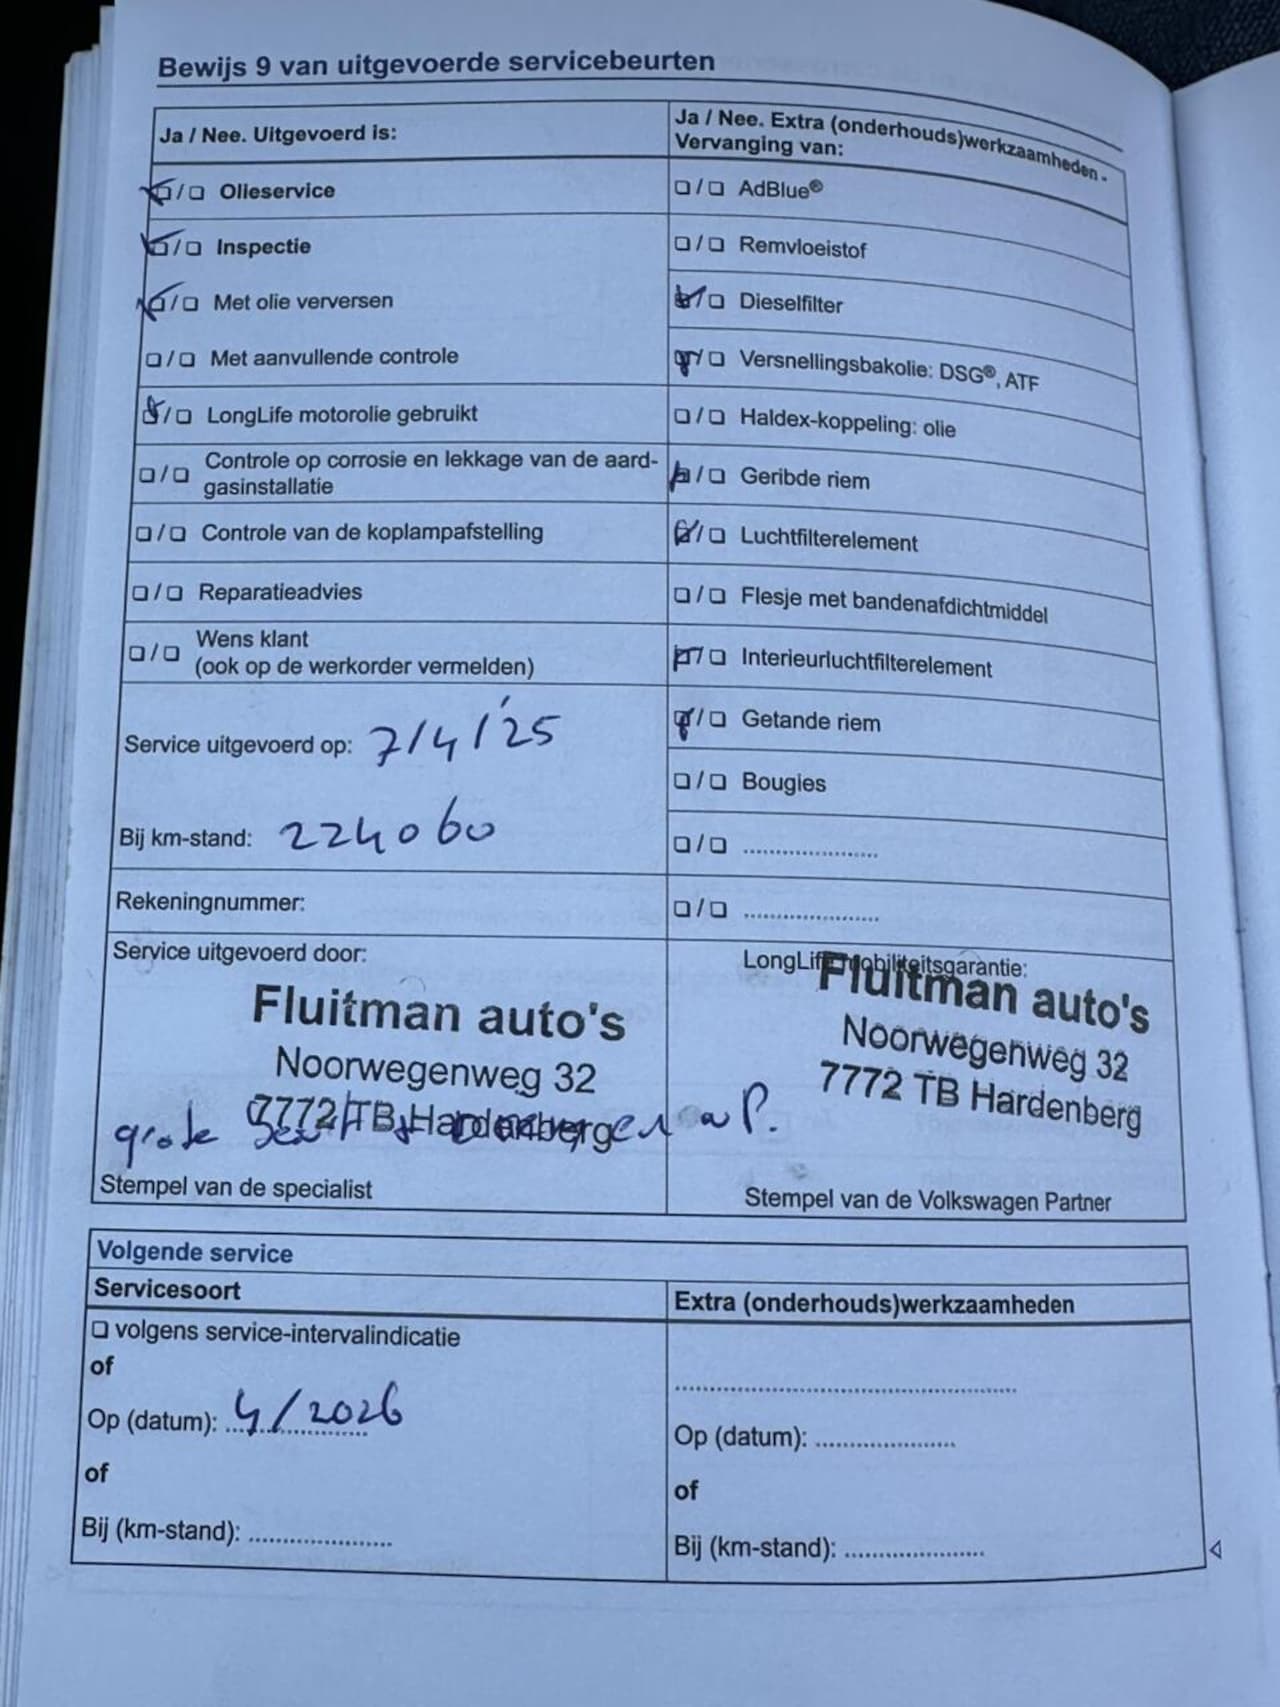 Bewijs 9 van uitgevoerde servicebeurten
Ja / Nee. Uitgevoerd is:
❏ / ❏ Olieservice
❏ / ❏ Inspectie
❏ / ❏ Met olie verversen
❏ / ❏ Met aanvullende controle
❏ / ❏ LongLife motorolie gebruikt
❏ / ❏ Controle op corrosie en lekkage van de aard-
gasinstallatie
❏ / ❏ Controle van de koplampafstelling
❏ / ❏ Reparatieadvies
❏ / ❏ Wens klant
(ook op de werkorder vermelden)
Service uitgevoerd op: 7/4/'25
Bij km-stand: 224060
Rekeningnummer:
Service uitgevoerd door:
Fluitman auto's
Noorwegenweg 32
7772 TB Hardenberg
grote
Stempel van de specialist
Ja / Nee. Extra (onderhouds)werkzaamheden -
Vervanging van:
❏ / ❏ AdBlue®
❏ / ❏ Remvloeistof
❏ / ❏ Dieselfilter
❏ / ❏ Versnellingsbakolie: DSG®, ATF
❏ / ❏ Haldex-koppeling: olie
❏ / ❏ Geribde riem
❏ / ❏ Luchtfilterelement
❏ / ❏ Flesje met bandenafdichtmiddel
❏ / ❏ Interieurluchtfilterelement
❏ / ❏ Getande riem
❏ / ❏ Bougies
❏ / ❏ .....................
❏ / ❏ .....................
LongLife mobiliteitsgarantie:
Fluitman auto's
Noorwegenweg 32
7772 TB Hardenberg
Stempel van de Volkswagen Partner
Volgende service
Servicesoort
❏ volgens service-intervalindicatie
of
Op (datum): 4/2026
of
Bij (km-stand): .....................
Extra (onderhouds)werkzaamheden
..................................................
Op (datum): .....................
of
Bij (km-stand): .....................